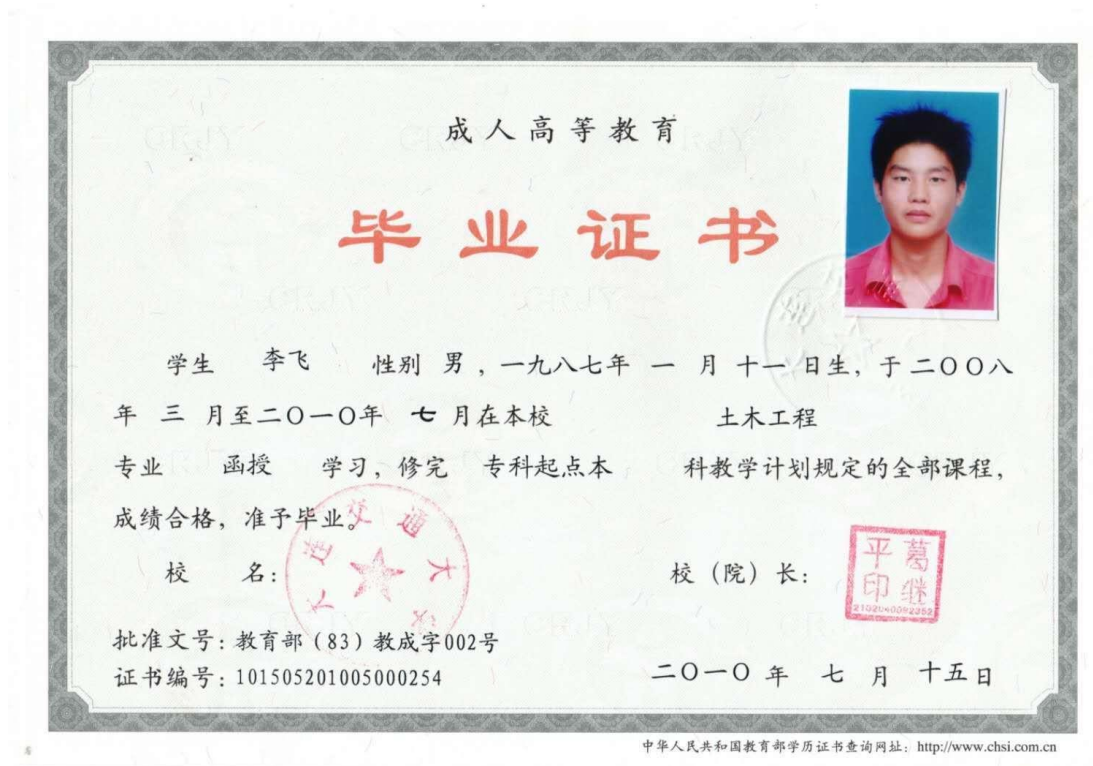 成人高等教育
毕业证书
学生 李飞 性别 男，一九八七年 一 月 十一 日生，于二〇〇八
年 三 月至二〇一〇年 七 月在本校 土木工程
专业 函授 学习，修完 专科起点本 科教学计划规定的全部课程，
成绩合格，准予毕业。
校 名：
大连交通大学
校（院）长：
葛继平印
批准文号：教育部（83）教成字002号
证书编号：101505201005000254
二〇一〇 年 七 月 十五日
中华人民共和国教育部学历证书查询网址：http://www.chsi.com.cn